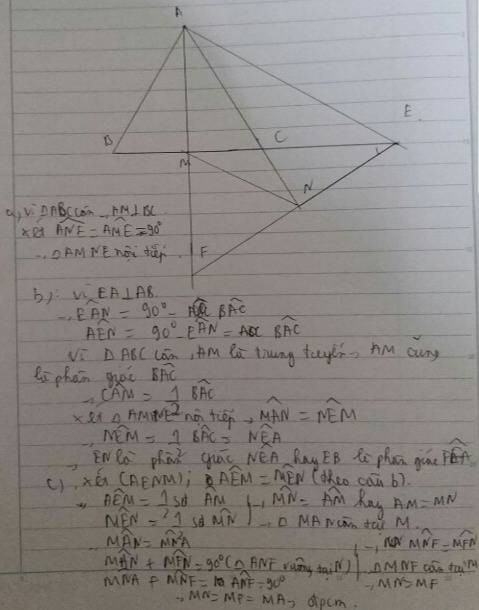 A
B
C
E
M
N
F
a, vì ΔABC cân → AM⊥BC
xét ANE = AME = 90°
→ ◇AMNE nội tiếp
b): vì EA⊥AB.
→ EAN = 90° - BAC
AEN = 90° - EAN = BAC
Vì ΔABC cân, AM là trung tuyến → AM cũng
là phân giác BAC
→ CAM = 1/2 BAC
xét ◇AMNE nội tiếp → MAN = NEM
→ NEM = 1/2 BAC = NEA
→ EN là phân giác NEA hay EB là phân giác
c), xét (AENM); AEM = MEN (theo câu b).
→ AEM = 1/2 sđ AM
MEN = 1/2 sđ MN
→ MN = AM hay AM = MN
→ Δ MAN cân tại M.
→ MAN = MNA
MAN + MFN = 90° (Δ ANF vuông tại N)
MNA + MNF = ANF = 90°
→ MNF = MFN
→ ΔMNF cân tại M
→ MN = MF
→ MN = MF = MA → đpcm.